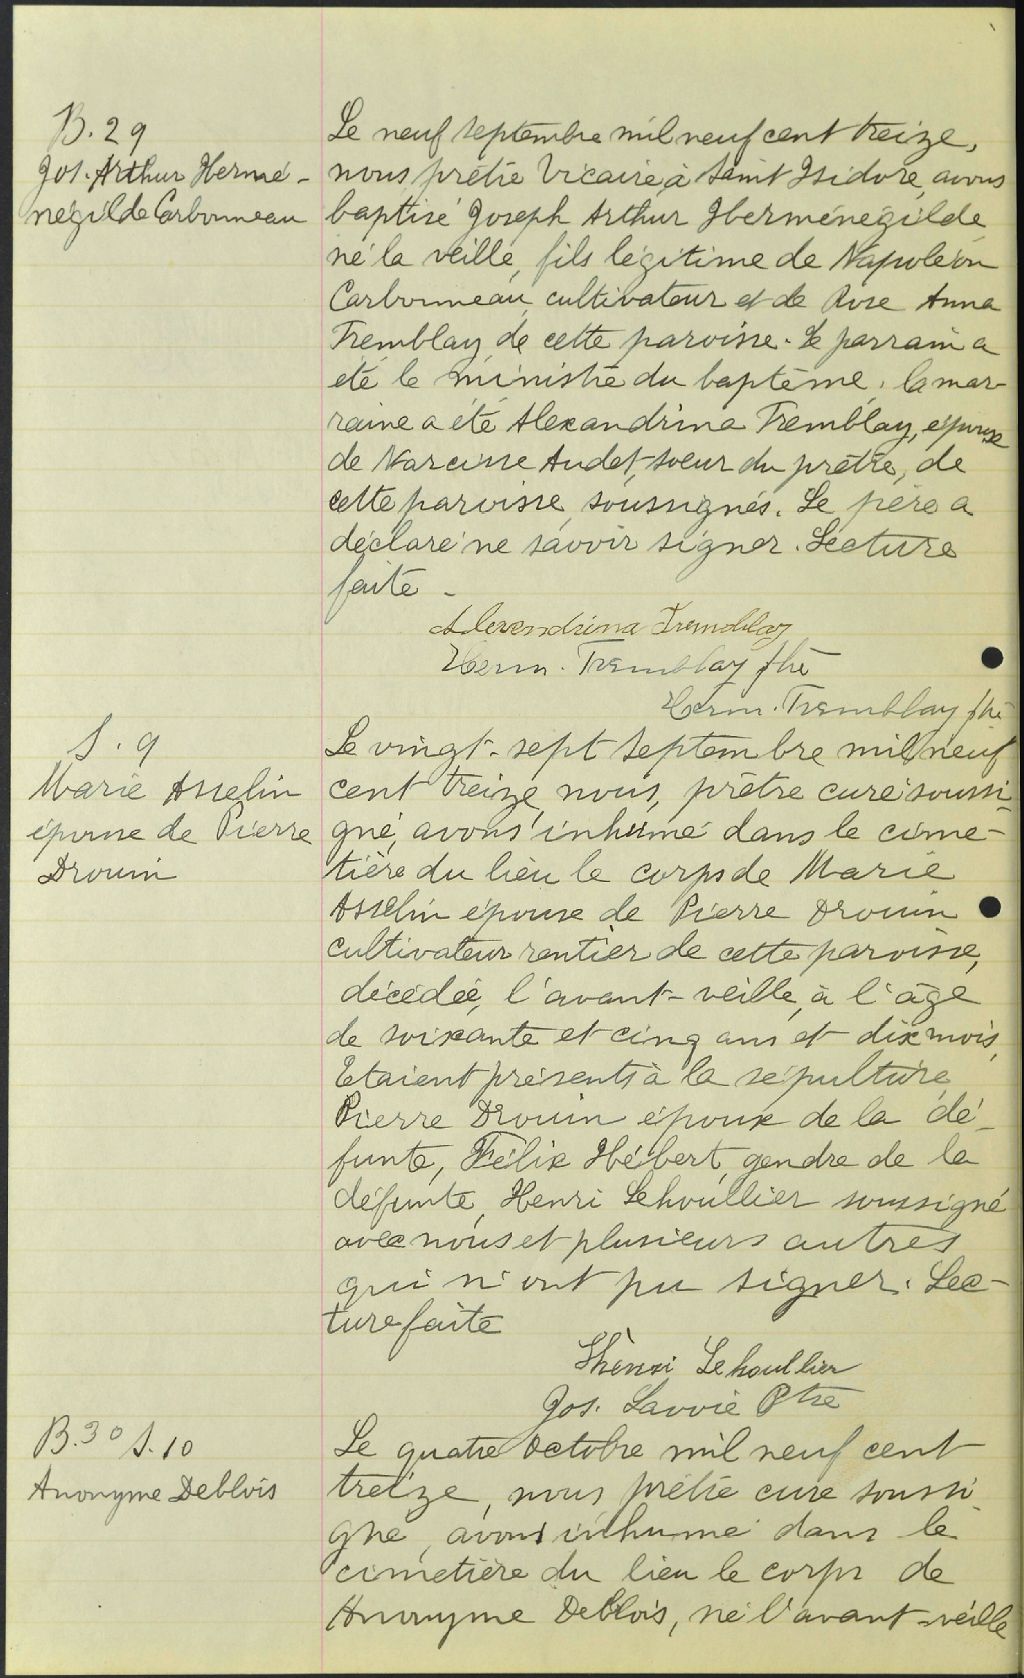 B. 29
Jos. Arthur Hermé-
négilde Carbonneau
Le neuf septembre mil neuf cent treize,
nous prêtre Vicaire à Saint Isidore, avons
baptisé Joseph Arthur Herménégilde
né la veille, fils légitime de Napoléon
Carbonneau, cultivateur et de Rose Anna
Tremblay, de cette paroisse. Le parrain a
été le ministre du baptême, la mar-
raine a été Alexandrina Tremblay, épouse
de Narcisse Audet, soeur du prêtre, de
cette paroisse, soussignés. Le père a
déclaré ne savoir signer. Lecture
faite -
Alexendrina Tremblay
Herm. Tremblay ptre
Herm. Tremblay ptre
S. 9
Marie Asselin
épouse de Pierre
Drouin
Le vingt-sept septembre mil neuf
cent treize, nous, prêtre curé soussi-
gné, avons inhumé dans le cime-
tière du lieu le corps de Marie
Asselin épouse de Pierre Drouin
cultivateur rentier de cette paroisse,
décédée, l'avant-veille, à l'âge
de soixante et cinq ans et dix mois,
Etaient présents à la sépulture
Pierre Drouin époux de la dé-
funte, Félix Hébert, gendre de la
défunte, Henri Lehoullier soussigné
avec nous et plusieurs autres
qui n'ont pu signer. Lec-
ture faite
Henri Lehoullier
Jos. Lavoie Ptre
B. 30 S. 10
Anonyme Deblois
Le quatre Octobre mil neuf cent
treize, nous prêtre curé soussi-
gné, avons inhumé dans le
cimetière du lieu le corps de
Anonyme Deblois, né l'avant-veille